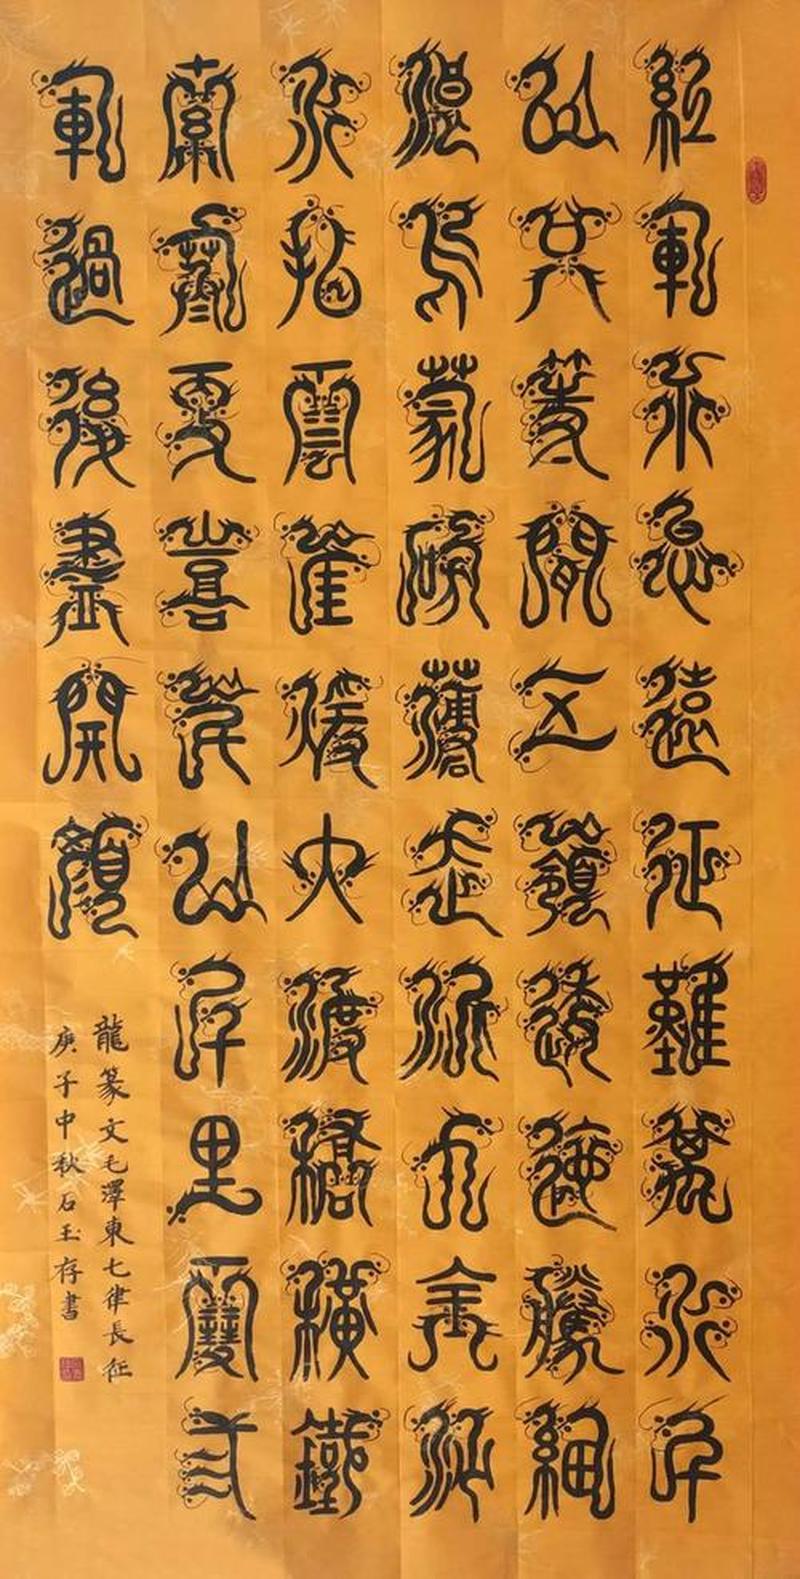 紅軍不怕遠征難萬水千
山只等閒五嶺逶迤騰細
浪烏蒙磅礴走泥丸金沙
水拍雲崖暖大渡橋橫鐵
索寒更喜岷山千里雪三
軍過後盡開顏
龍篆文毛澤東七律長征
庚子中秋石玉存書